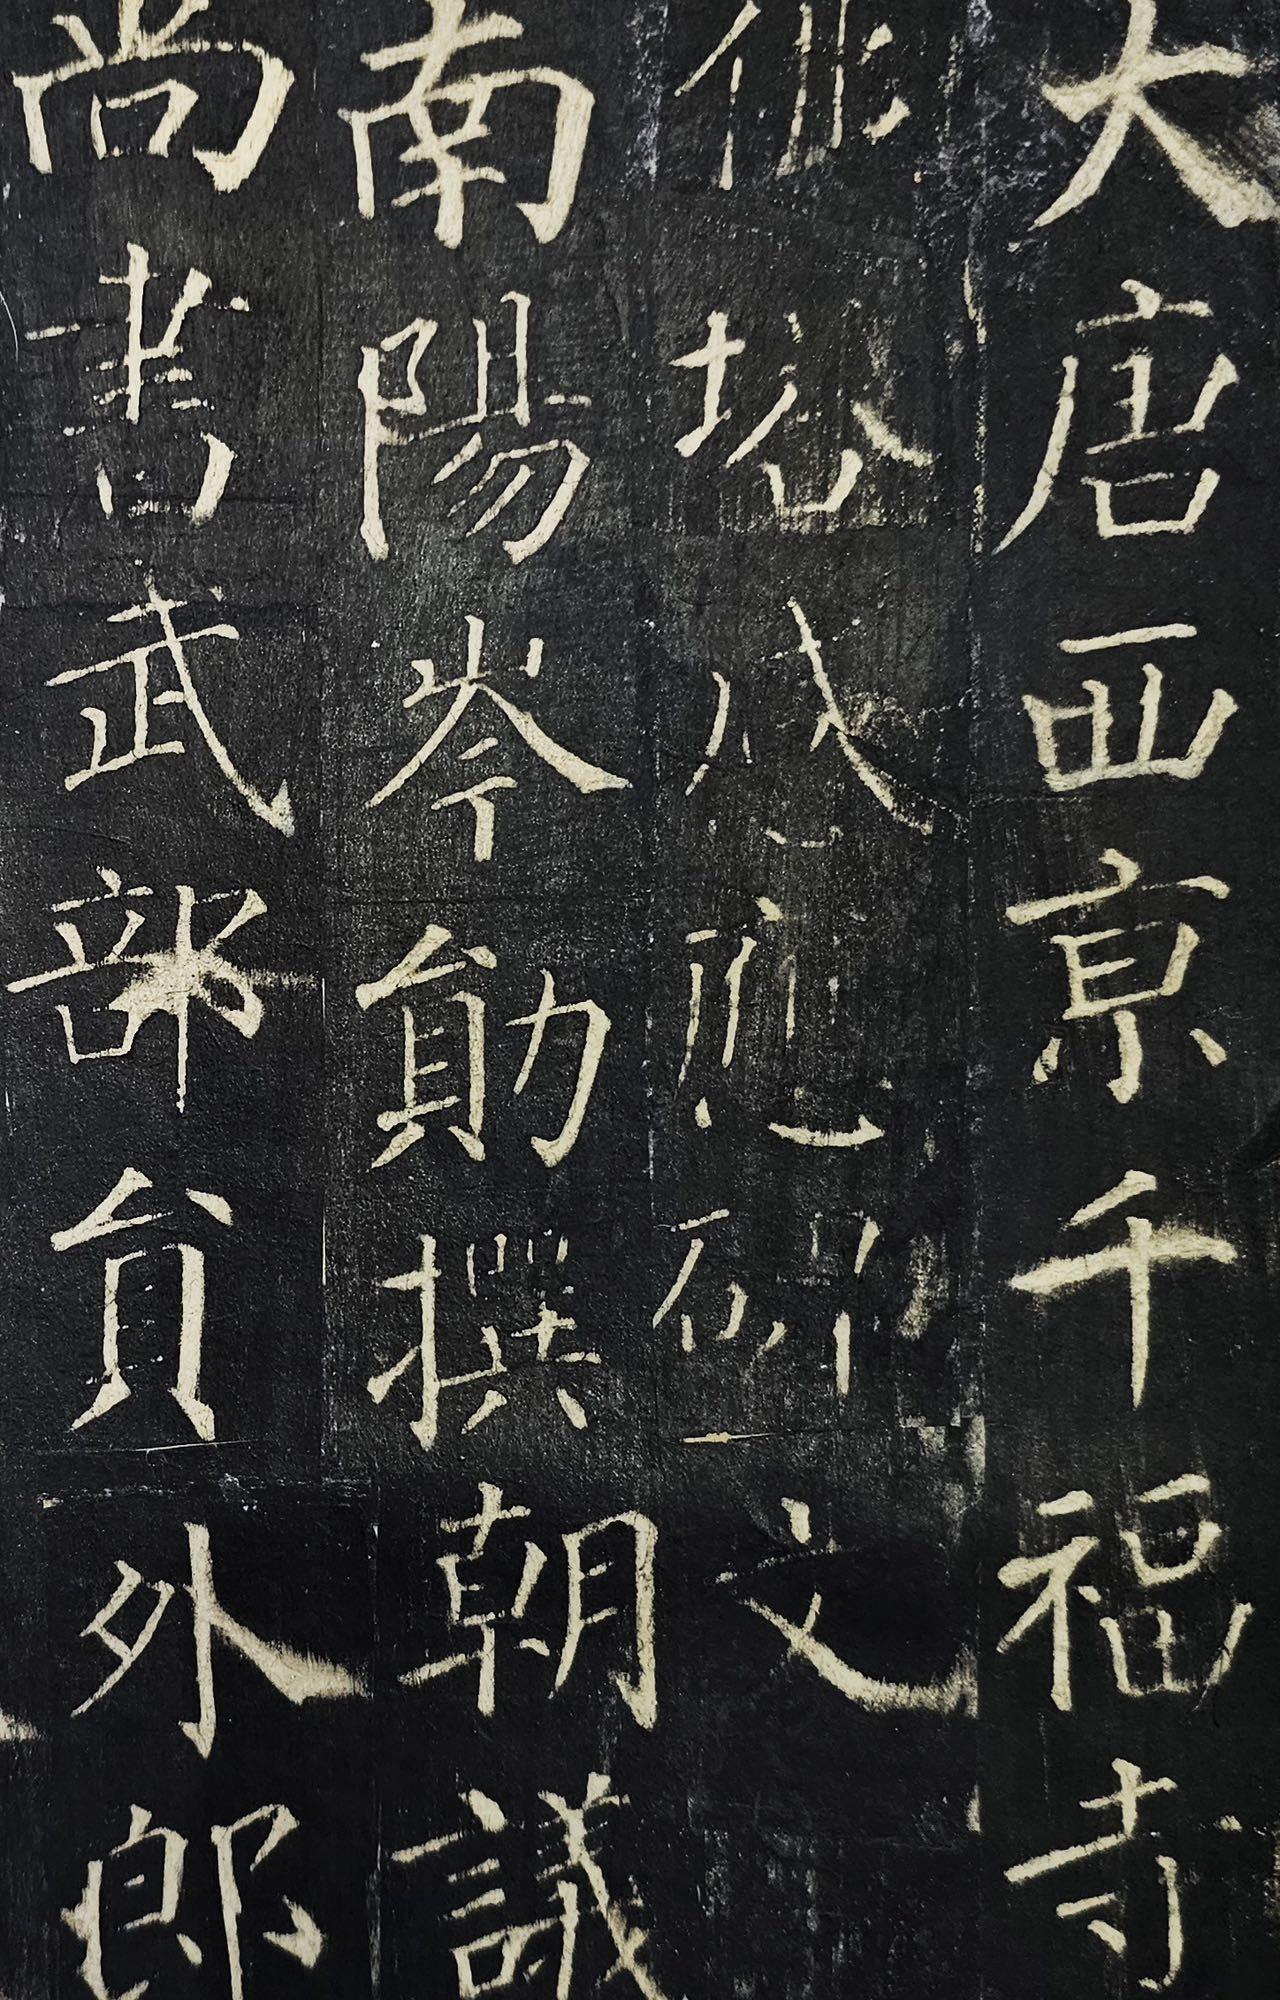 大唐西京千福寺
佛塔感應碑文
南陽岑勛撰朝議
尚書武部員外郎